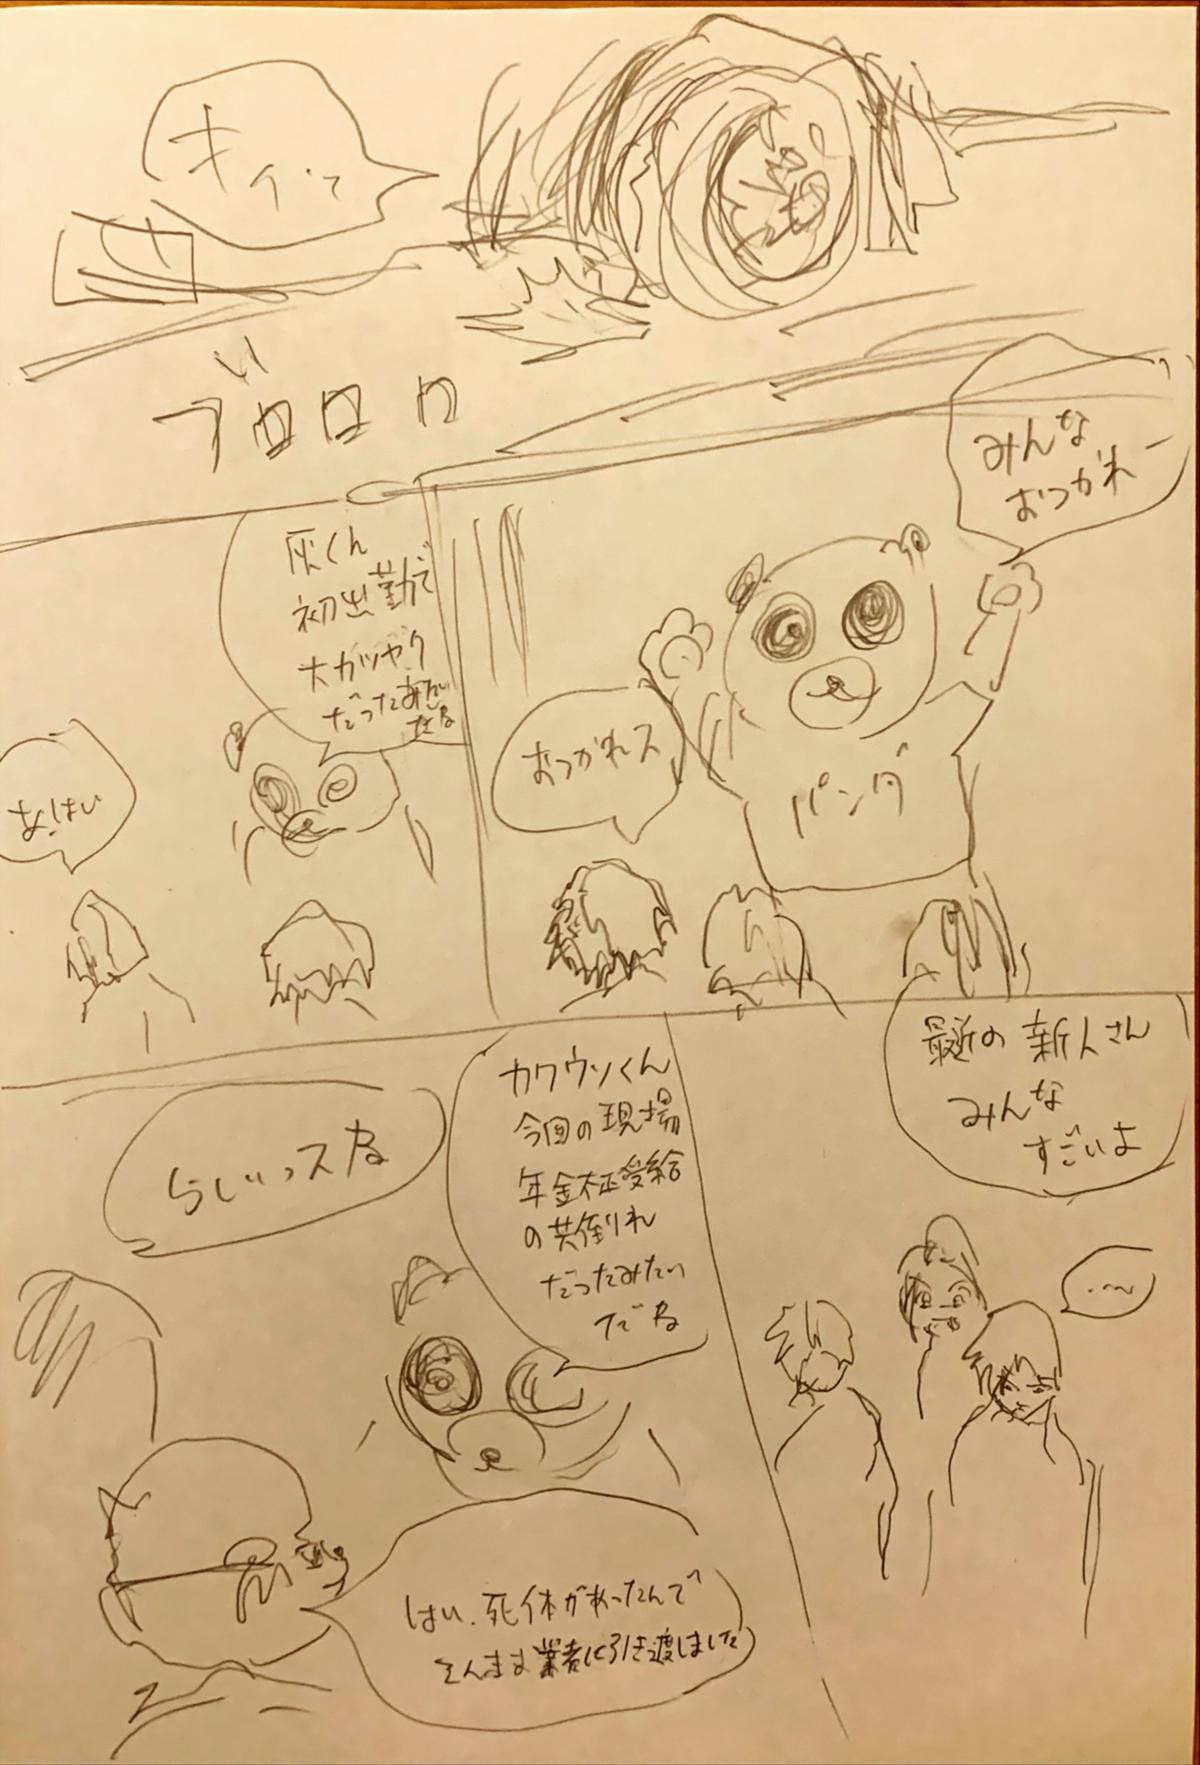 ブロロロ
みんな
おつかれー
パンダ
おつかれス
灰くん
初出勤で
大カツヤク
だったみたい
だね
あ、はい
最近の新人さん
みんな
すごいよ
カワウソくん
今回の現場
年金不正受給
の共倒れ
だったみたい
だね
らしいっスね
はい、死体があったんで
そんまま業者に引き渡しました